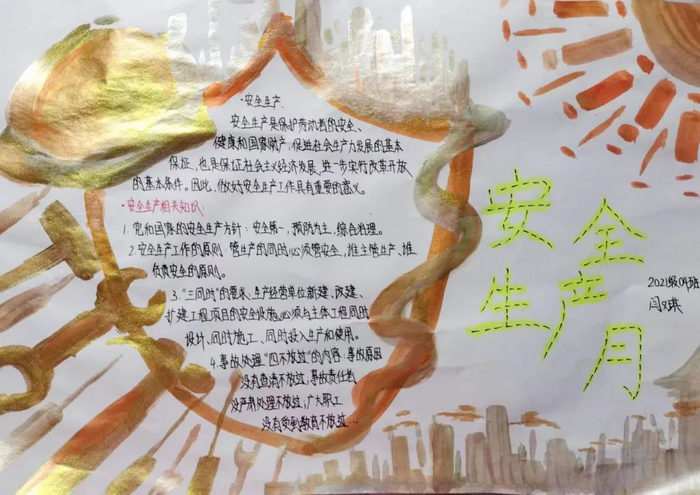 ·安全生产.
安全生产是保护劳动者的安全、
健康和国家财产,促进社会生产力发展的基本
保证,也是保证社会主义经济发展,进一步实行改革开放
的基本条件。因此,做好安全生产工作具有重要的意义。
·安全生产相关知识:
1.党和国家的安全生产方针:安全第一,预防为主,综合治理。
2.安全生产工作的原则 管生产的同时必须管安全,谁主管生产、谁
负责安全的原则。
3."三同时"的要求、生产经营单位新建、改建、
扩建工程项目的安全设施,必须与主体工程同时
设计、同时施工、同时投入生产和使用。
4.事故处理"四不放过"的内容:事故原因
没有查清不放过,事故责任者
没严肃处理不放过,广大职工
没有受到教育不放过……
安全
生产月
2021级04班
闫